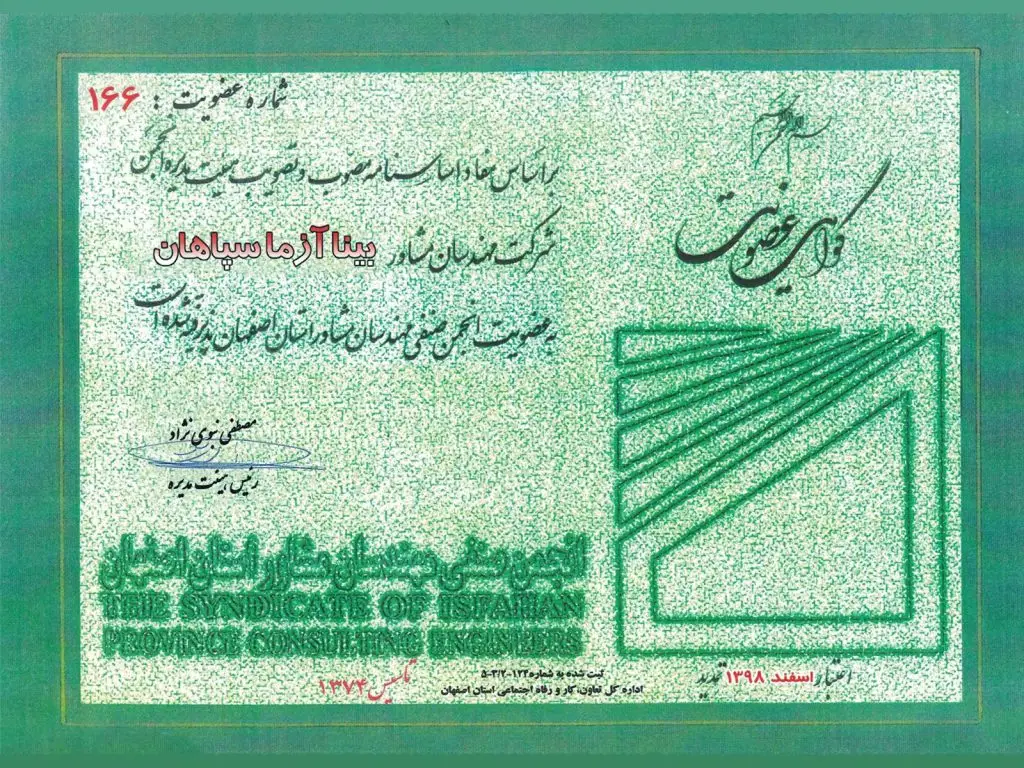 بسم الله الرحمن الرحیم
گواهی عضویت
شماره عضویت : ۱۶۶
بر اساس مفاد اساسنامه مصوب و تصویب هیئت مدیره انجمن
شرکت مهندسان مشاور بینا آزما سپاهان
به عضویت انجمن صنفی مهندسان مشاور استان اصفهان پذیرفته شده است
مصطفی نبوی نژاد
رئیس هیئت مدیره
انجمن صنفی مهندسان مشاور استان اصفهان
THE SYNDICATE OF ISFAHAN
PROVINCE CONSULTING ENGINEERS
تاسیس ۱۳۷۴
ثبت شده به شماره ۱۲۲-۳/۲-۵
اداره کل تعاون، کار و رفاه اجتماعی استان اصفهان
اعتبار اسفند ۱۳۹۸ تمدید